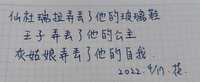 仙杜瑞拉弄丢了他的玻璃鞋
王子弄丢了他的公主
灰姑娘弄丢了他的自我
2022. 4/17. 花.